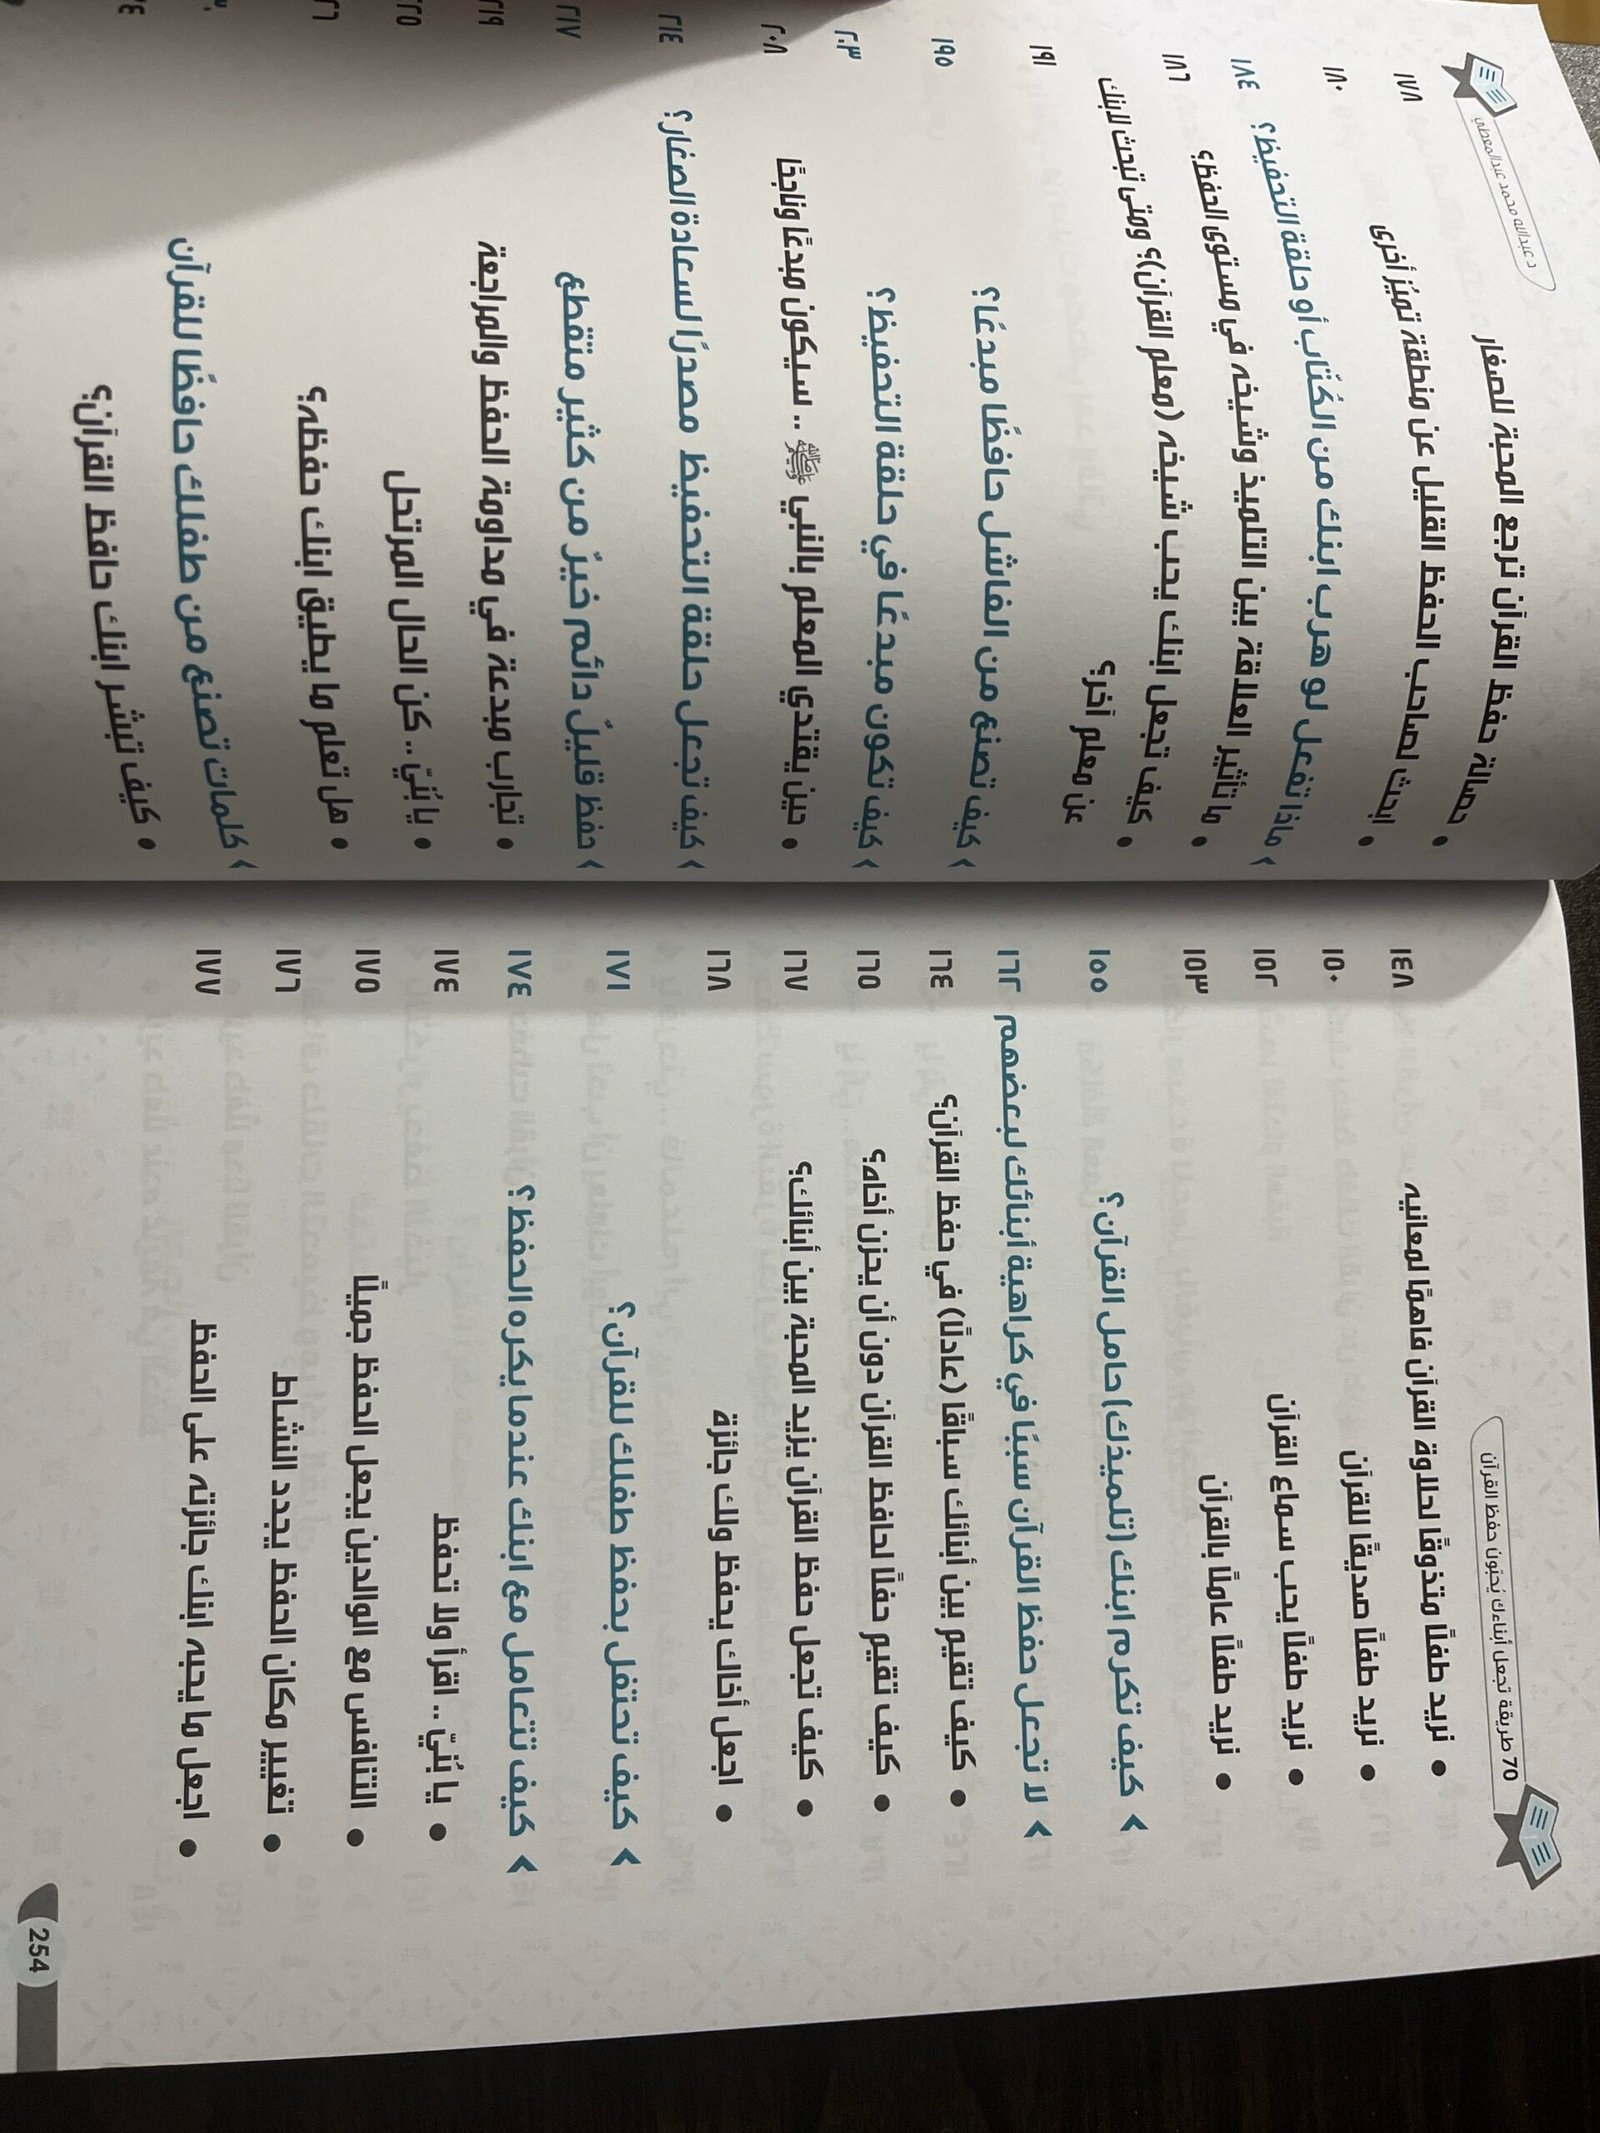 70 طريقة تجعل أبناءك يُحبّون حفظ القرآن
• نريد طفلًا متذوقًا لحلاوة القرآن فاهمًا لمعانيه ١٤٨
• نريد طفلًا صديقًا للقرآن ١٥٠
• نريد طفلًا يحب سماع القرآن ١٥٢
• نريد طفلًا عاملًا بالقرآن ١٥٣
‹ كيف تكرم ابنك (تلميذك) حامل القرآن؟ ١٥٥
‹ لا تجعل حفظ القرآن سببًا في كراهية أبنائك لبعضهم ١٦٢
• كيف تقيم بين أبنائك سباقًا (عادلًا) في حفظ القرآن؟ ١٦٤
• كيف تقيم حفلًا لحافظ القرآن دون أن يحزن أخاه؟ ١٦٥
• كيف تجعل حفظ القرآن يزيد المحبة بين أبنائك؟ ١٦٧
• اجعل أخاك يحفظ ولك جائزة ١٦٨
‹ كيف تحتفل بحفظ طفلك للقرآن؟ ١٧١
‹ كيف تتعامل مع ابنك عندما يكره الحفظ؟ ١٧٤
• يا بُنيّ .. اقرأ ولا تحفظ ١٧٤
• التنافس مع الوالدين يجعل الحفظ جميلًا ١٧٥
• تغيير مكان الحفظ يجدد النشاط ١٧٦
• اجعل ما يحبه ابنك جائزته على الحفظ ١٧٧
254
د عبدالله محمد عبدالمعطي
• حصالة حفظ القرآن ترجع المحبة للصغار ١٧٨
• ابحث لصاحب الحفظ القليل عن منطقة تميُّز أخرى ١٨٠
‹ ماذا تفعل لو هرب ابنك من الكُتّاب أو حلقة التحفيظ؟ ١٨٤
• ما تأثير العلاقة بين التلميذ وشيخه في مستوى الحفظ؟ ١٨٦
• كيف تجعل ابنك يحب شيخه (معلم القرآن)؟ ومتى تبحث لابنك
عن معلم آخر؟ ١٩١
‹ كيف تصنع من الفاشل حافظًا مبدعًا؟ ١٩٥
‹ كيف تكون مبدعًا في حلقة التحفيظ؟ ٢٠٣
• حين يقتدي المعلم بالنبي ﷺ .. سيكون مبدعًا وناجحًا ٢٠٨
‹ كيف تجعل حلقة التحفيظ مصدرًا لسعادة الصغار؟ ٢١٤
‹ حفظ قليلٌ دائم خيرٌ من كثير متقطع ٢١٧
• تجارب مبدعة في مداومة الحفظ والمراجعة ٢١٩
• يا بُنيّ .. كن الحال المرتحل ٢٢٥
• هل تعلم ما يطيق ابنك حفظه؟
‹ كلمات تصنع من طفلك حافظًا للقرآن
• كيف تبشر ابنك حافظ القرآن؟